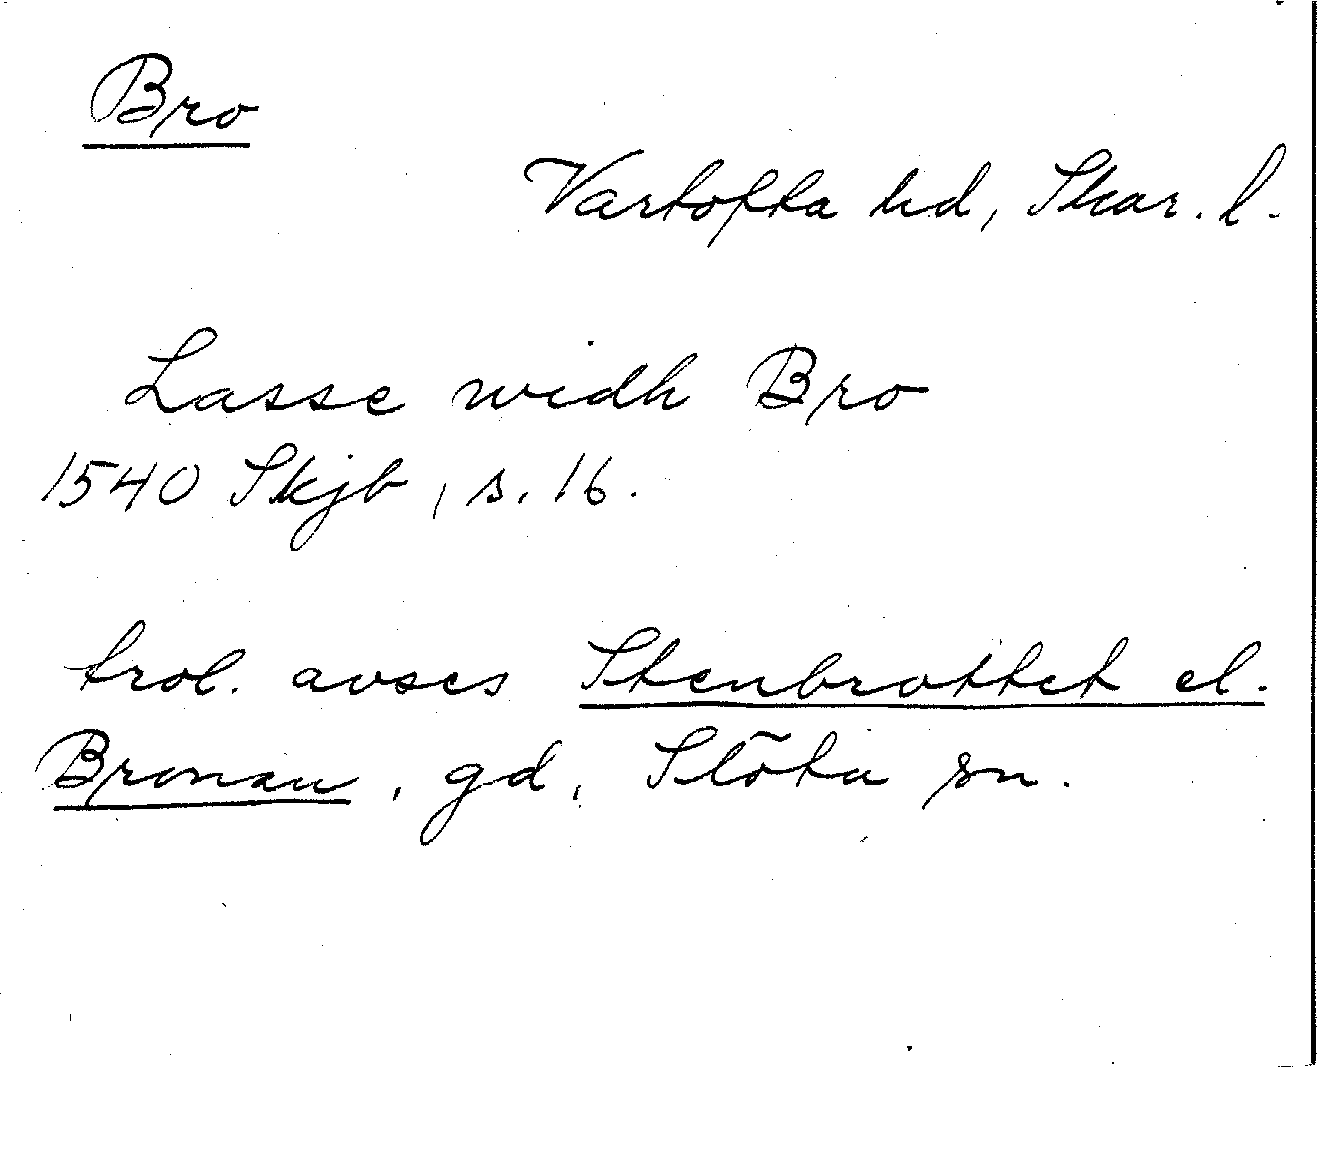 Bro
Vartofta hd, Skar. l.
Lasse widh Bro
1540 Skjb, s. 16.
trol. avses Stenbrottet el.
Bronan, gd, Slöta sn.